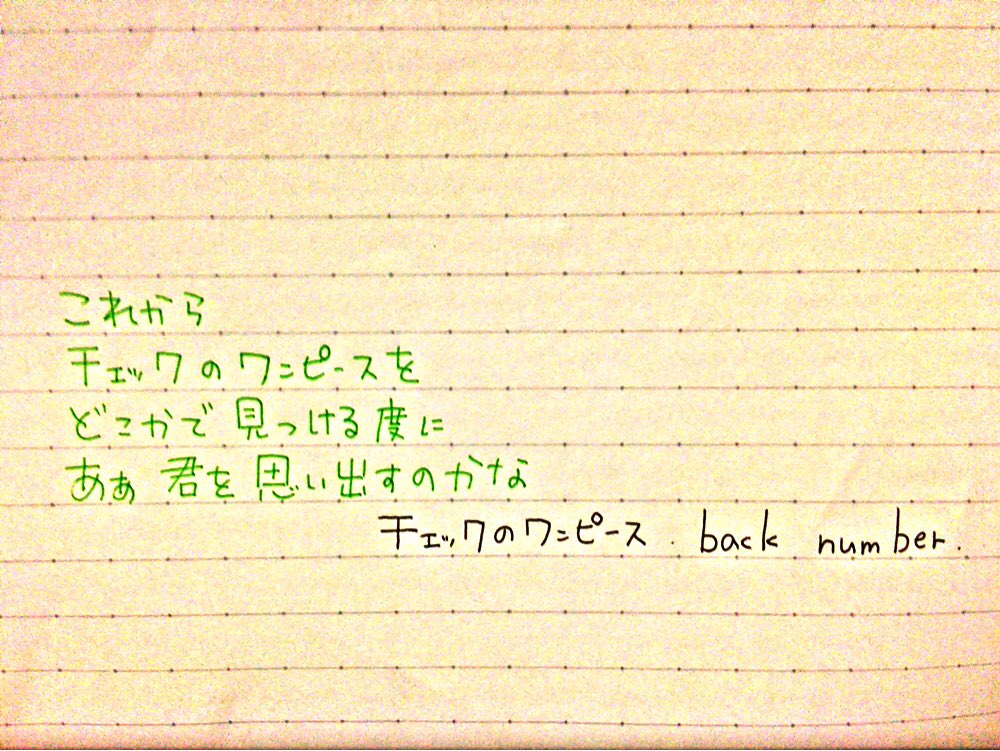 これから
チェックのワンピースを
どこかで見つける度に
ああ 君を思い出すのかな
チェックのワンピース . back number.